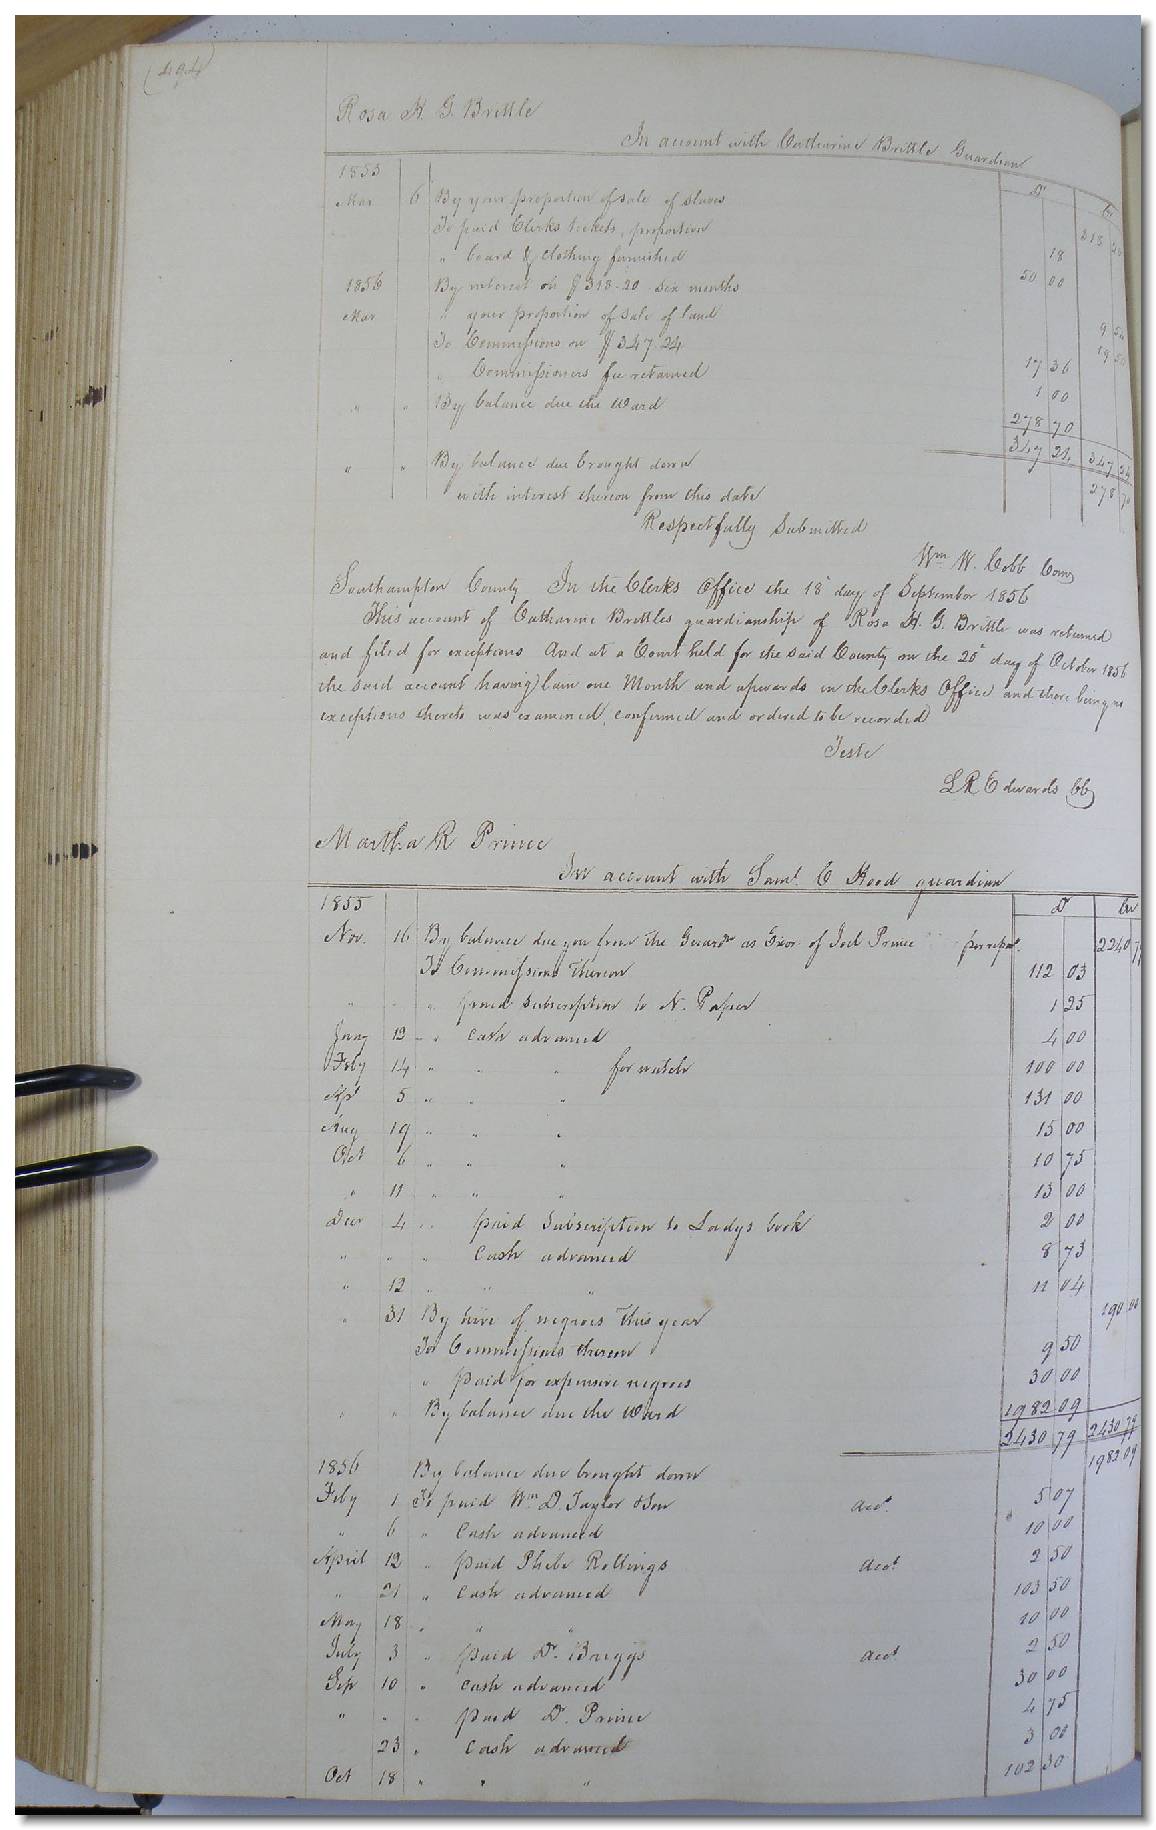 494
Rosa H. G. Brittle
In account with Catharine Brittle Guardian
1855 Dr Cr
Mar 6 By your proportion of sale of slaves 318 20
To paid Clerks tickets, proportion 18
" board & clothing furnished 50 00
1856 By interest on $318.20 six months 9 54
Mar " your proportion of sale of land 19 50
To Commissions on $347.24 17 36
" Commissioners fee returned 1 00
" " By balance due the Ward 278 70
347 24 347 24
" " By balance due brought down 278 70
with interest thereon from this date
Respectfully Submitted
Wm W. Cobb Com
Southampton County In the Clerks Office the 18 day of September 1856
This account of Catharine Brittles guardianship of Rosa H. G. Brittle was returned
and filed for exceptions And at a Court held for the said County on the 20 day of October 1856
the said account having lain one Month and upwards in the Clerks Office and there being no
exceptions thereto was examined, confirmed and ordered to be recorded
Teste
L R Edwards CC
Martha R Prince
In account with Saml. C Hood guardian
1855 Dr Cr
Nov. 16 By balance due you from the Guardn as Exor of Joel Prince per report. 2240 79
To Commissions thereon 112 03
" " " paid subscription to N. Paper 1 25
Jany 12 " cash advanced 4 00
Feby 14 " " " for watch 100 00
Apl 5 " " " 131 00
Aug 19 " " " 15 00
Oct 6 " " " 10 75
" 11 " " " 13 00
Decr 4 " paid Subscription to Ladys book 2 00
" " " Cash advanced 8 73
" 12 " " " 11 04
" 31 By hire of negroes this year 190 00
To Commissions thereon 9 50
" paid for expensive negroes 30 00
" " By balance due the Ward 1982 09
2430 79 2430 79
1856 By balance due brought down 1982 09
Feby 1 To paid Wm D. Taylor & Son Acct. 5 07
" 6 " Cash advanced 10 00
April 12 " paid Phebe Rollings Acct. 2 50
" 21 " Cash advanced 103 50
May 18 " " " 10 00
July 3 " paid Dr. Briggs Acct. 2 50
Sep 10 " Cash advanced 30 00
" " " paid D. Prince 4 75
23 " Cash advanced 3 00
Oct 18 " " " 102 30